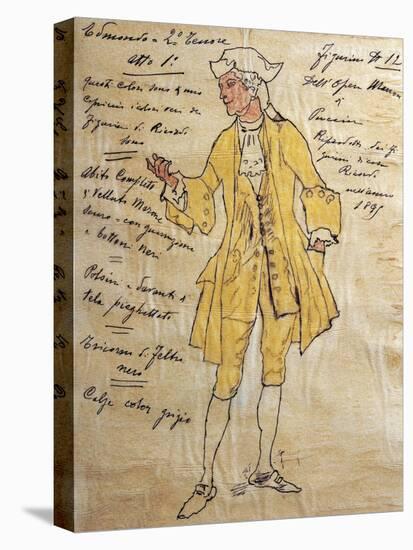 Edmondo = 2º Tenore
Atto 1º
questi colori sono a mio
capriccio i colori veri dei
Figurini di Ricordi
sono
Abito Completo
di Velluto Marrone
scuro = con guarnizione
e bottoni neri
Polsini e davanti di
tela pieghettato
Tricorno di Feltro
nero
Calze color grigio
Figurino Nº 12
Dell'Opera Manon
di
Puccini
Riprodotto dai fi
gurini di casa
Ricordi
nell'anno
1895